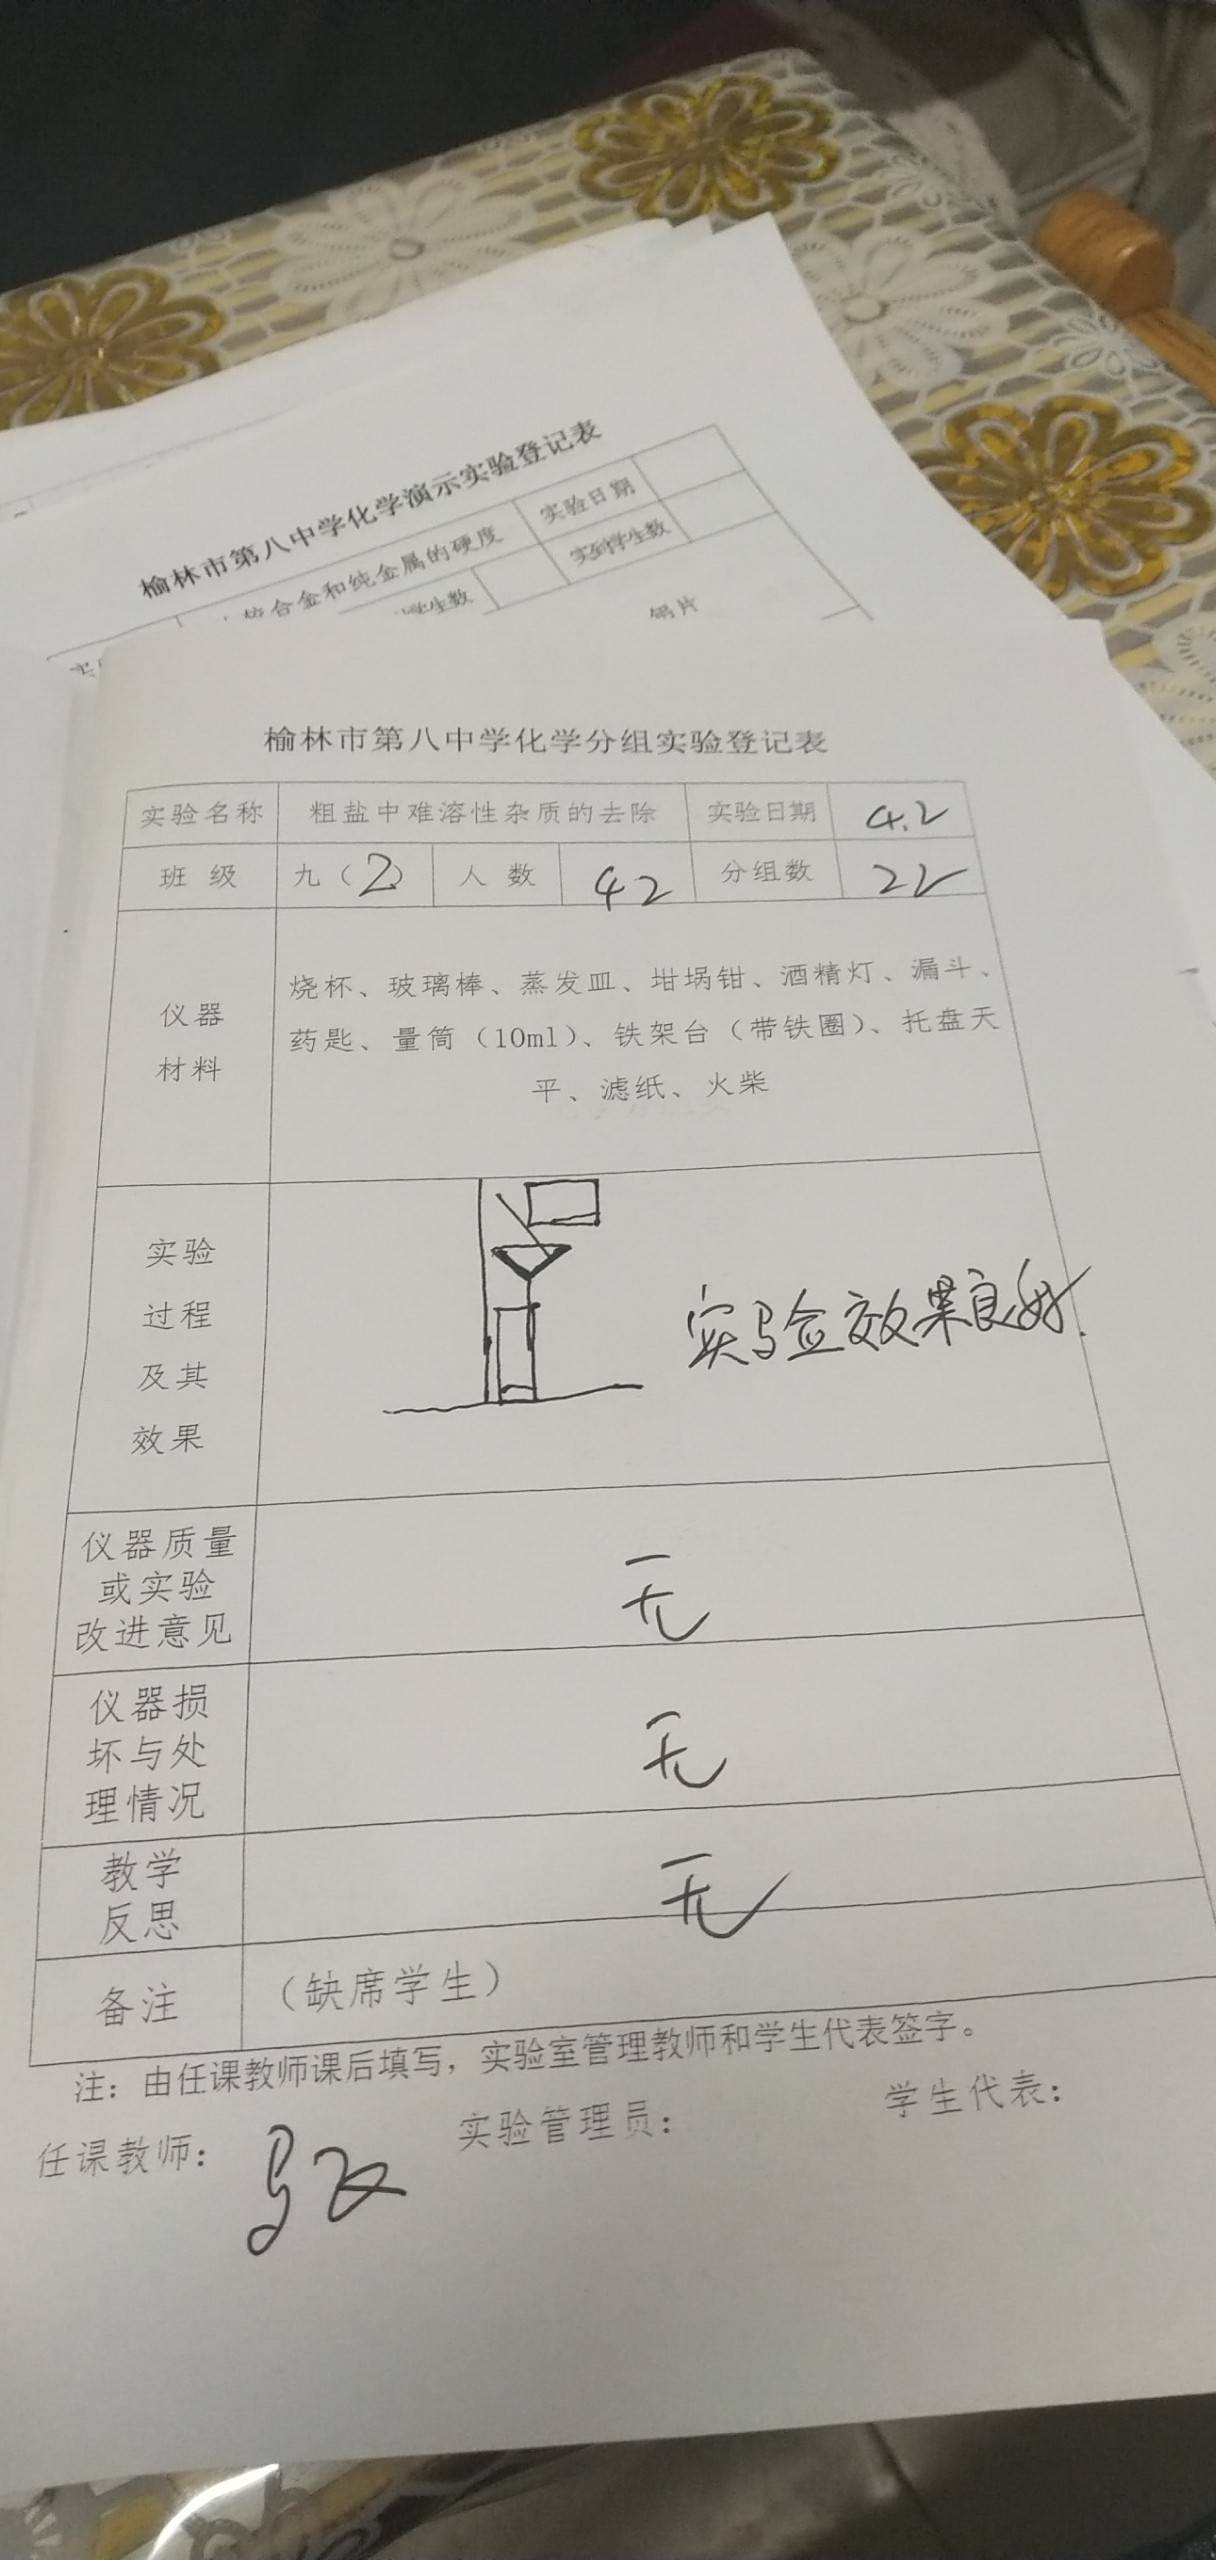 榆林市第八中学化学演示实验登记表
较合金和纯金属的硬度 实验日期
学生数 实到学生数
榆林市第八中学化学分组实验登记表
实验名称 粗盐中难溶性杂质的去除 实验日期 4.2
班 级 九（2） 人 数 42 分组数 22
仪器
材料
烧杯、玻璃棒、蒸发皿、坩埚钳、酒精灯、漏斗、
药匙、量筒（10ml）、铁架台（带铁圈）、托盘天
平、滤纸、火柴
实验
过程
及其
效果
实验效果良好.
仪器质量
或实验
改进意见
无
仪器损
坏与处
理情况
无
教学
反思
无
备注 （缺席学生）
注：由任课教师课后填写，实验室管理教师和学生代表签字。
任课教师： 实验管理员： 学生代表：